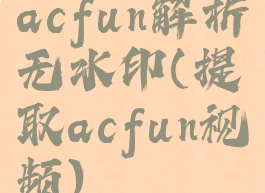 acfun解析
无水印(提
取acfun视
频)